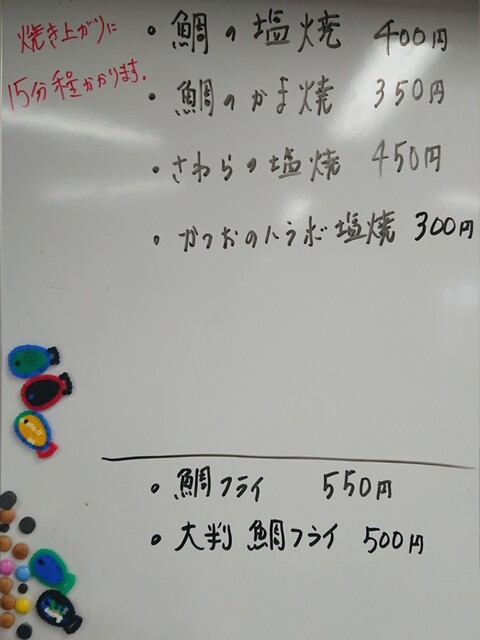 焼き上がりに
15分程かかります.
・鯛の塩焼 400円
・鯛のかま焼 350円
・さわらの塩焼 450円
・かつおのハラボ塩焼 300円
・鯛フライ 550円
・大判鯛フライ 500円